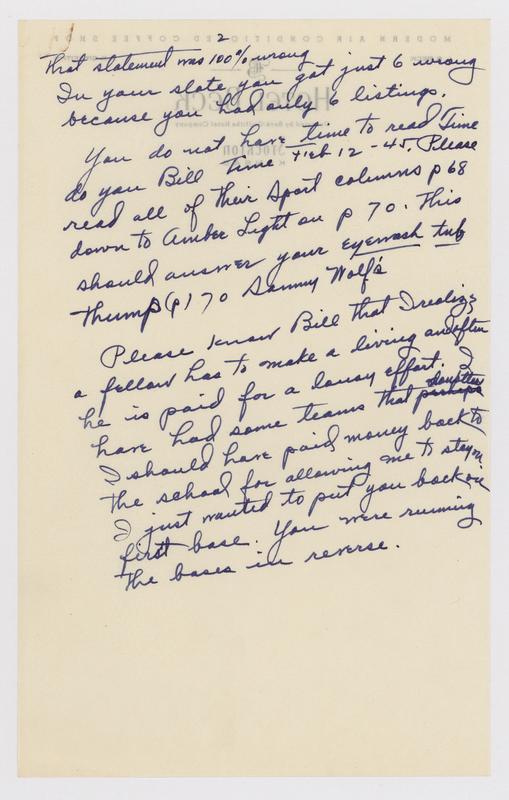 2
That statement was 100% wrong
In your slate you got just 6 wrong
because you had only 6 listings.
You do not have time to read Time
do you Bill Time Feb 12 - 45. Please
read all of their Sport columns p 68
down to Amber Light on p 70. This
should answer your eyewash tub
thump (p) 70 Sammy Wolf's
Please know Bill that I realize
a fellow has to make a living and often
he is paid for a lousy effort. I
have had some teams that perhaps
I should have paid money back to
the school for allowing me to stay on.
I just wanted to put you back on
first base. You were running
the bases in reverse.